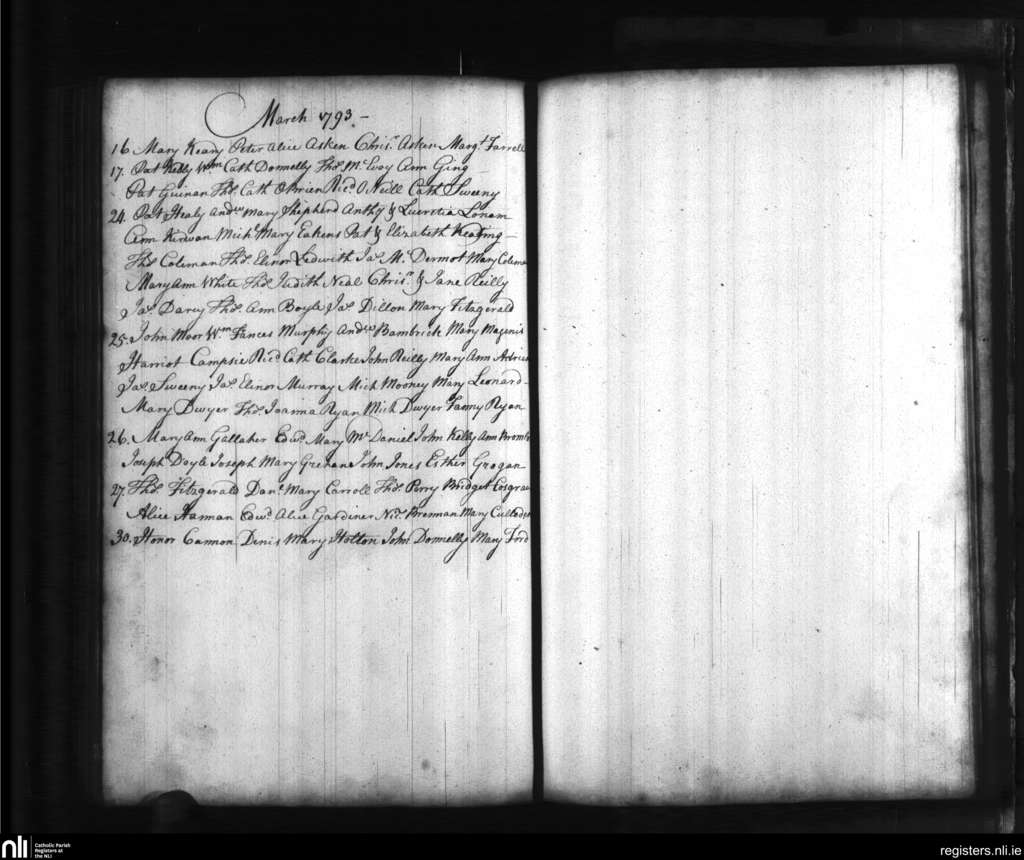 March 1793.-
16. Mary Keary Peter Alice Asken Chrisr. Asken Margt. Farrell
17. Pat Kelly Wm Cath Donnelly Thos. Mc. Evoy Ann Ging
Pat Guinan Thos. Cath OBrien Ricd O Neill Cath Sweeny
24. Pat Healy Andw Mary Shepherd Anthy & Lucretia Lonam
Ann Kirwan Michl Mary Eakens Pat & Elizabeth Keating-
Thos. Coleman Thos. Elinor Ledwith Jas. Mc. Dermot Mary Coleman
Mary Ann White Thos. Judith Neal Chrisr. & Jane Reilly
Jas. Darcy Thos. Ann Boyle Jas. Dillon Mary Fitzgerald
25. John Moor Wm Fances Murphy Andw Bambrick Mary Magenis
Harriot Campsie Ricd Cath Clarke John Reilly Mary Ann
Jas. Sweeny Jas. Elinor Murray Mich Mooney Mary Leonard-
Mary Dwyer Thos. Joanna Ryan Mich Dwyer Fanny Ryan
26. Mary Ann Gallaher Edwd. Mary Mc Daniel John Kelly Ann
Joseph Doyle Joseph Mary Grehane John Jones Esther Grogan
27. Thos. Fitzgerald Danl. Mary Carroll Thos. Perry Bridget Cosgrave
Alice Harman Edwd. Alice Gardiner Nichs. Brennan Mary
30. Honor Cannon Denis Mary Hotton John Donnelly Mary Ford
nli
Catholic Parish
Registers at
the NLI
registers.nli.ie